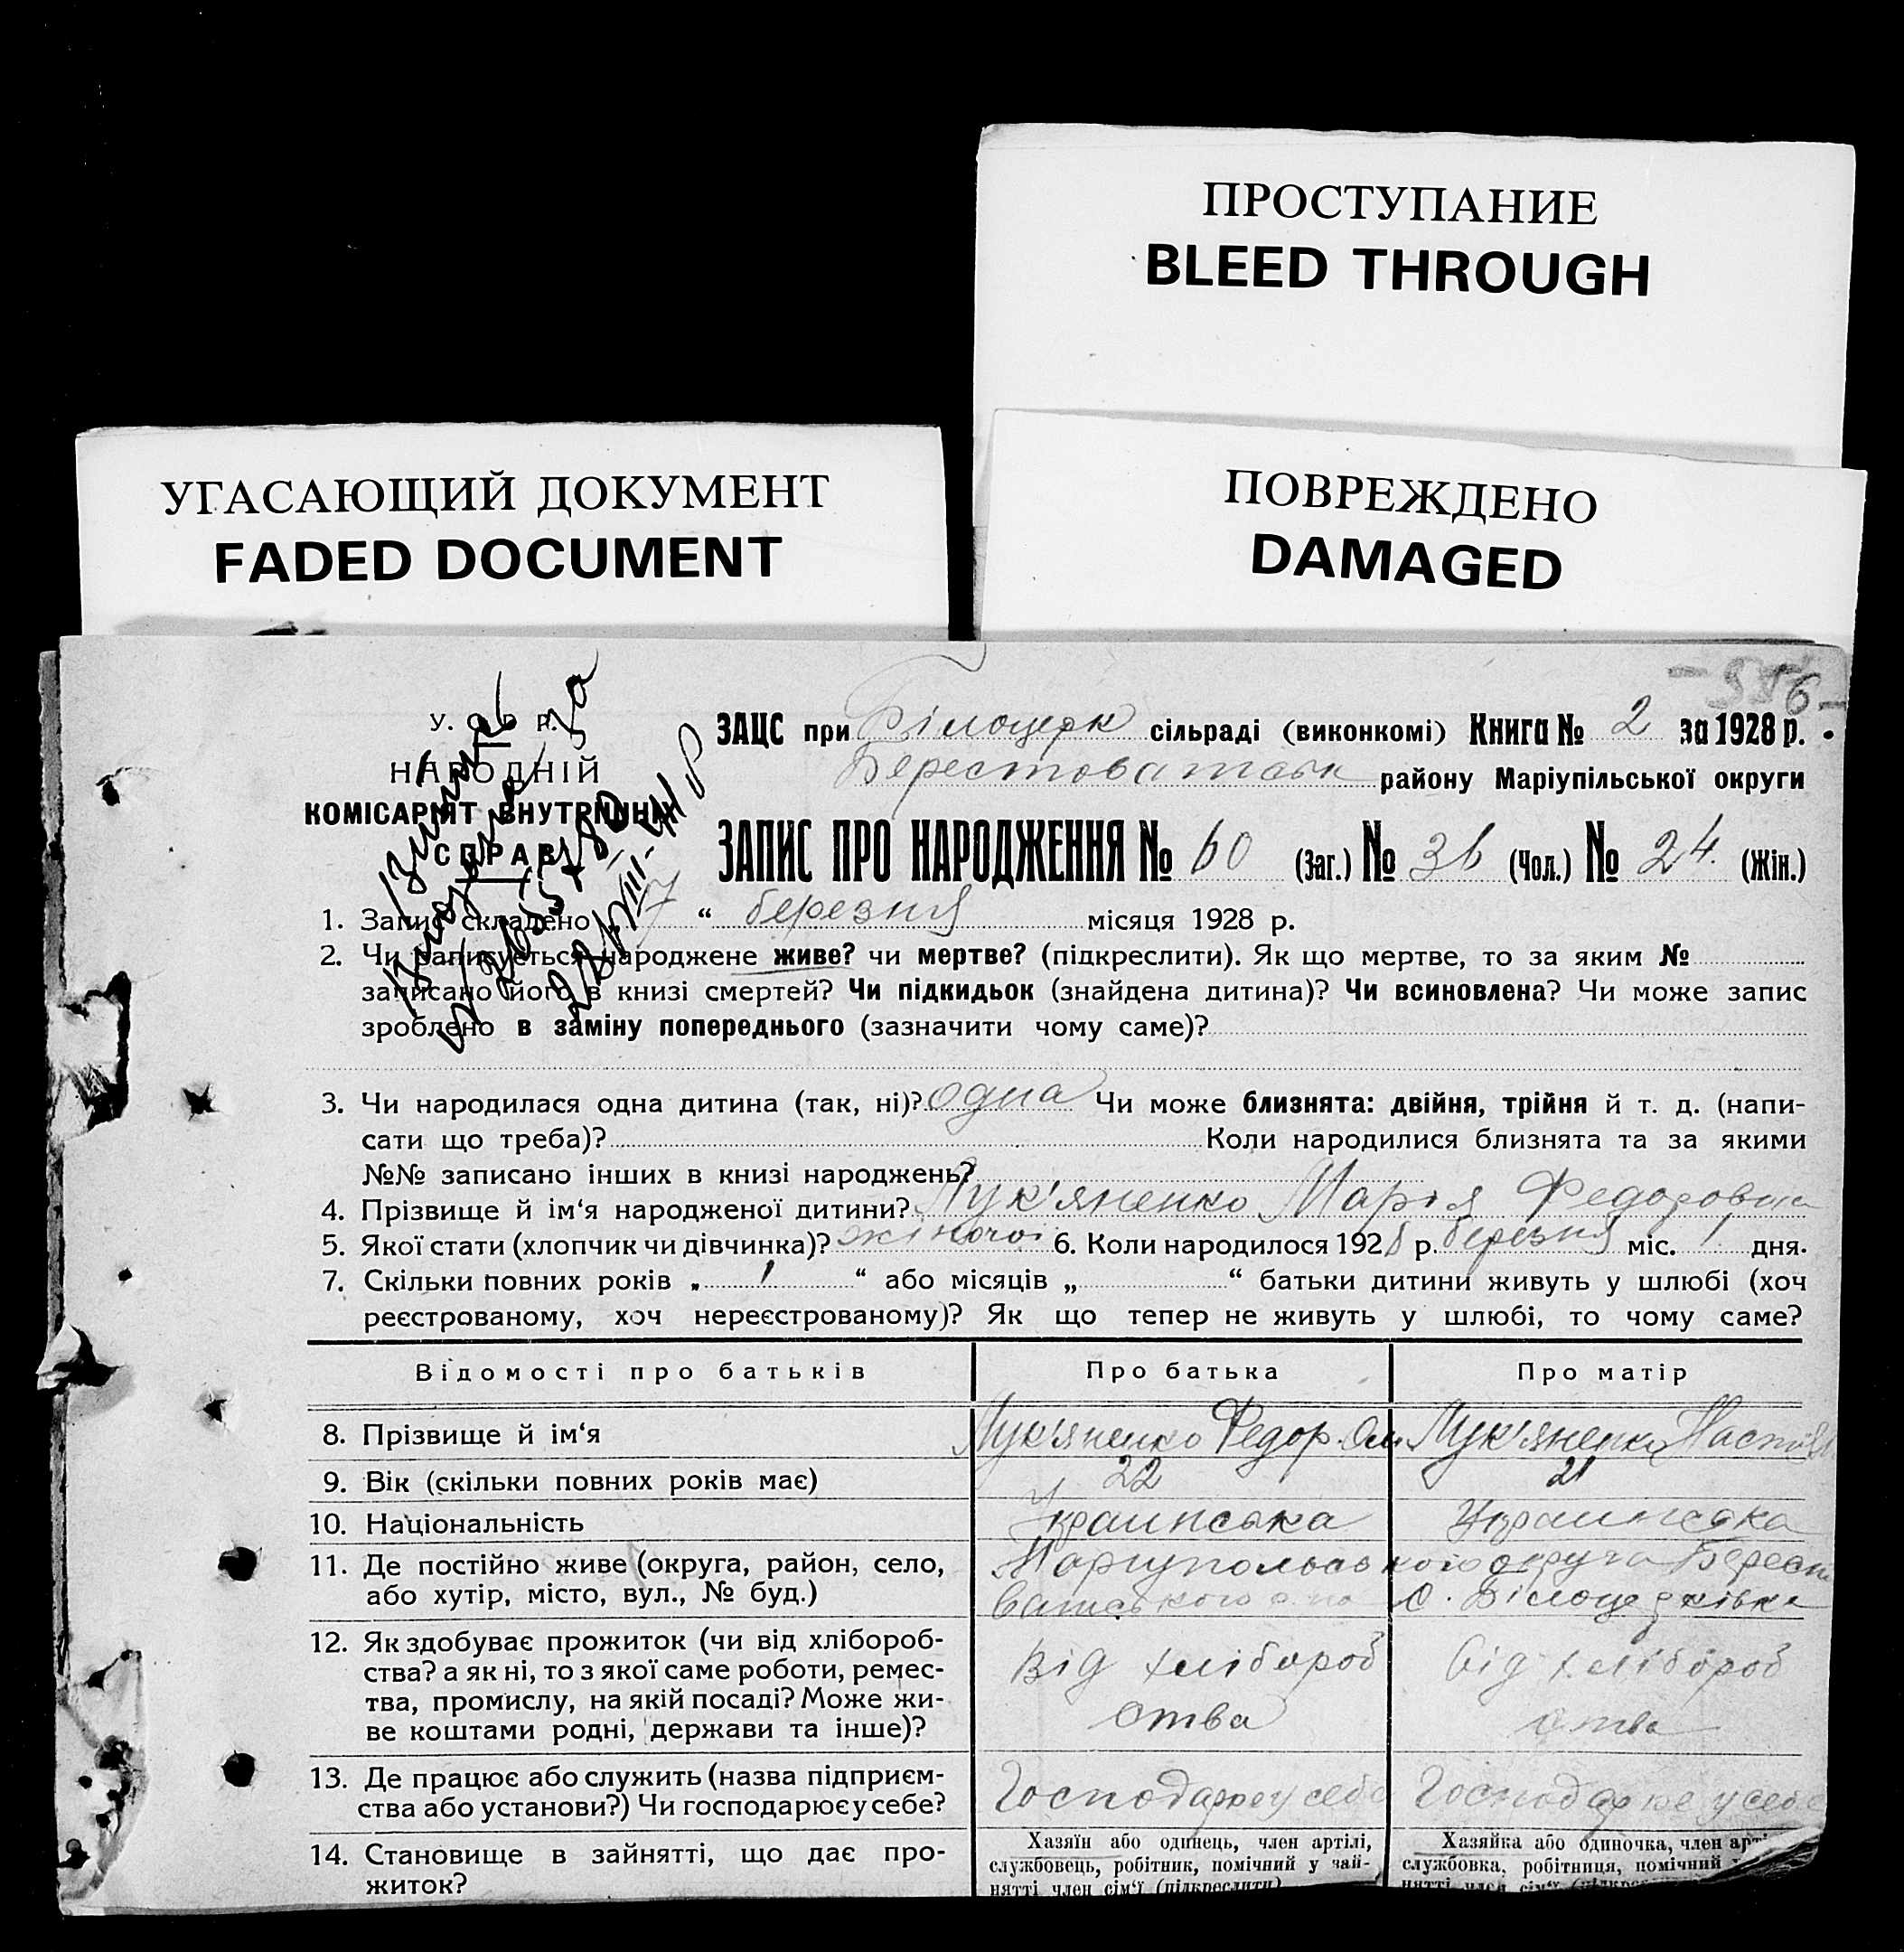 ПРОСТУПАНИЕ
BLEED THROUGH
УГАСАЮЩИЙ ДОКУМЕНТ
FADED DOCUMENT
ПОВРЕЖДЕНО
DAMAGED
У. С. Р. Р.
НАРОДНІЙ
КОМІСАРІЯТ ВНУТРІШНІХ
СПРАВ
ЗАЦС при Білоцерк сільраді (виконкомі) Книга № 2 за 1928 р.
Берестоватськ району Маріупільської округи
ЗАПИС ПРО НАРОДЖЕННЯ № 60 (Заг.) № 36 (Чол.) № 24. (Жін.)
1. Запис складено „7“ березня місяця 1928 р.
2. Чи записується народжене живе? чи мертве? (підкреслити). Як що мертве, то за яким №
записано його в книзі смертей? Чи підкидьок (знайдена дитина)? Чи всиновлена? Чи може запис
зроблено в заміну попереднього (зазначити чому саме)?
3. Чи народилася одна дитина (так, ні)? одна Чи може близнята: двійня, трійня й т. д. (напи-
сати що треба)? Коли народилися близнята та за якими
№№ записано інших в книзі народжень?
4. Прізвище й ім‘я народженої дитини? Лук'яненко Марія Федоровна
5. Якої стати (хлопчик чи дівчинка)? жіночої 6. Коли народилося 1928 р. березня міс. 1 дня.
7. Скільки повних років „ 1 “ або місяців „ “ батьки дитини живуть у шлюбі (хоч
реєстрованому, хоч нереєстрованому)? Як що тепер не живуть у шлюбі, то чому саме?
Відомості про батьків Про батька Про матір
8. Прізвище й ім‘я Лук'яненко Федор Лук'яненко Настя
9. Вік (скільки повних років має) 22 21
10. Національність Украинська Украинська
11. Де постійно живе (округа, район, село, Маріупольського округа Берест
або хутір, місто, вул., № буд.) ватського с. Білоцерківка
12. Як здобуває прожиток (чи від хлібороб- Від хлібороб від хлібороб
ства? а як ні, то з якої саме роботи, ремес-
тва, промислу, на якій посаді? Може жи- ства ства
ве коштами родні, держави та інше)?
13. Де працює або служить (назва підприєм- Господарює у себе Господарює у себе
ства або установи?) Чи господарює у себе?
14. Становище в зайнятті, що дає про- Хазяїн або одинець, член артілі, Хазяйка або одиночка, член арті
житок? службовець, робітник, помічний у зай- службовка, робітниця, помічний
нятті член сім‘ї (підкреслити) нятті член сім‘ї